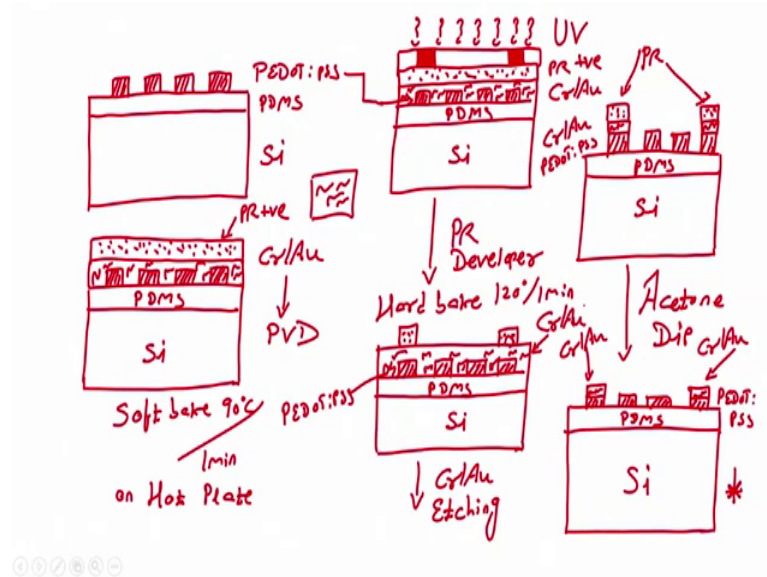 PEDOT:PSS
PDMS
Si
PR+ve
Cr/Au
PDMS
PVD
Si
Soft bake 90°C
1min
on Hot Plate
UV
PR +ve
Cr/Au
PDMS
Si
PR
Developer
Hard bake 120°/1min
Cr/Au
PEDOT:PSS
PDMS
Si
Cr/Au
Etching
PR
Cr/Au
PEDOT:PSS
PDMS
Si
Acetone
Dip
Cr/Au
Cr/Au
PEDOT:
PSS
PDMS
Si